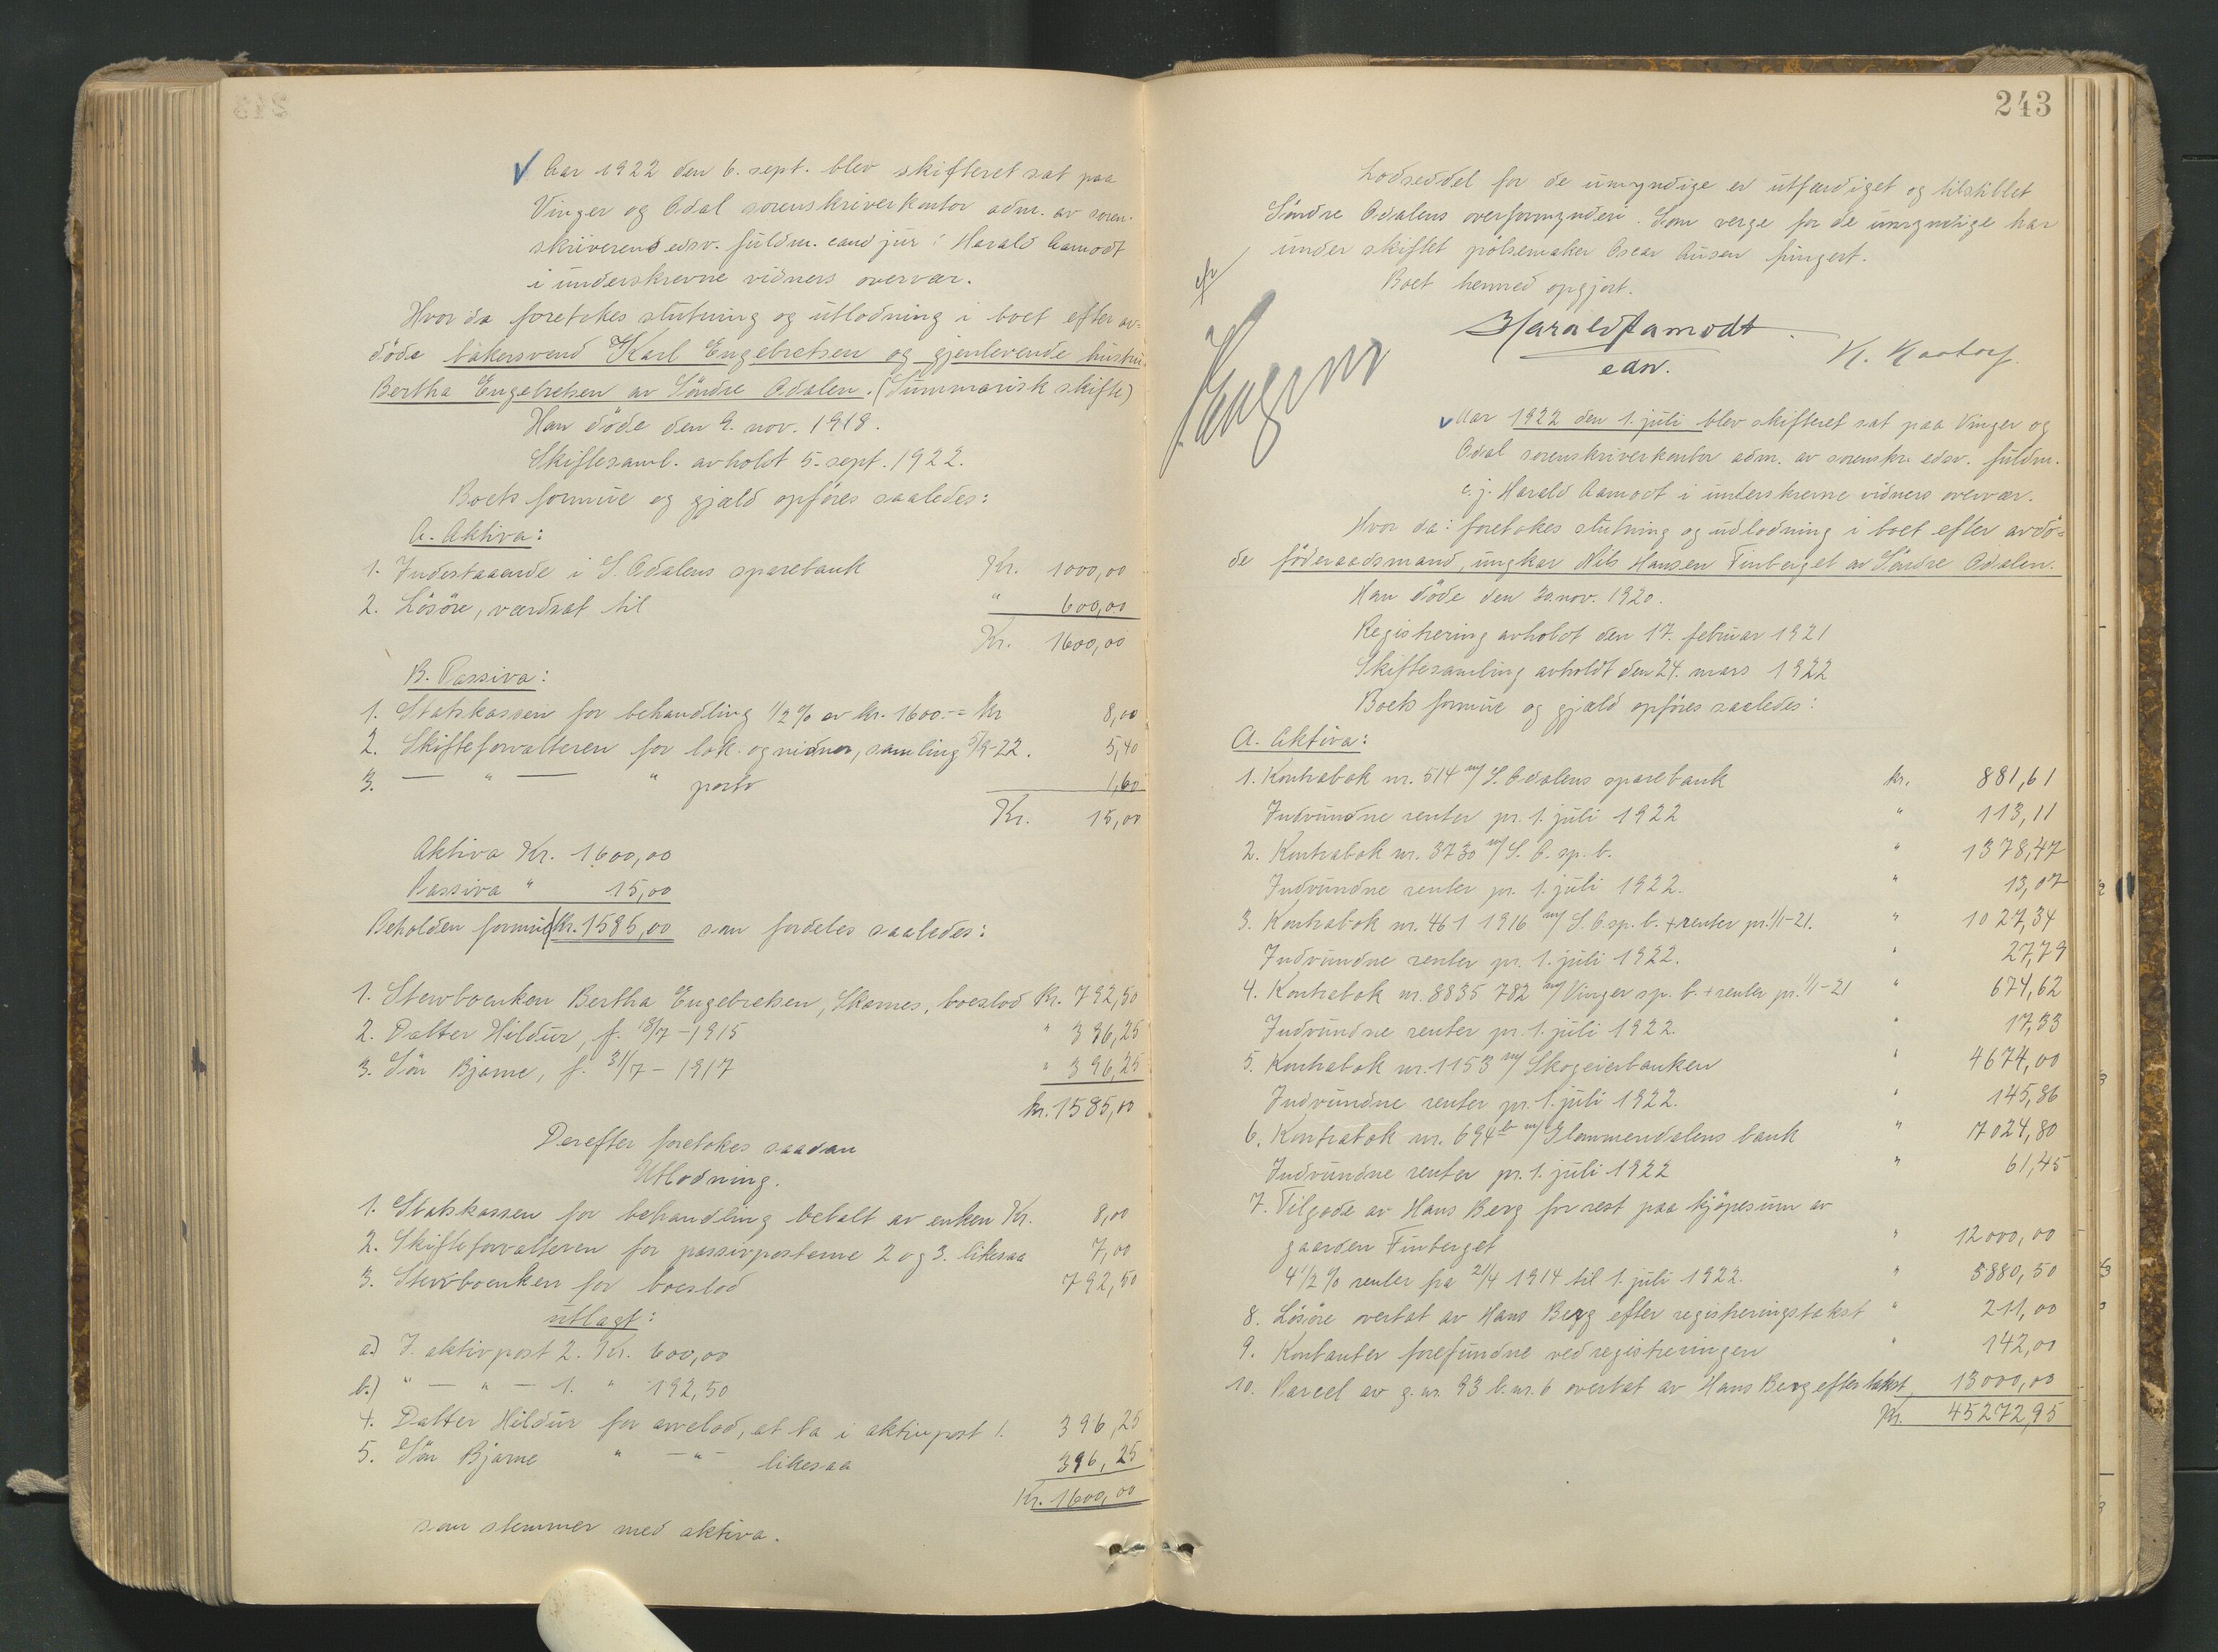 Aar 1922 den 6. sept. blev skifteret sat paa
Vinger og Odal sorenskriverkontor adm. av soren-
skriverens edsv. fuldm. cand jur: Harald Aamodt
i underskrevne vidners overvær.
Hvor da foretokes slutning og utlodning i boet efter av-
døde bakersvend Karl Engebretsen og gjenlevende hustru
Bertha Engebretsen av Søndre Odalen. (Summarisk skifte)
Han døde den 9. nov. 1918.
Skiftesaml. avholdt 5. sept. 1922.
Boets formue og gjæld opføres saaledes:
A. Aktiva:
1. Indestaaende i S. Odalens sparebank Kr. 1000,00
2. Løsøre, værdsat til " 600,00
Kr. 1600,00
B. Passiva:
1. Statskassen for behandling 1/2 % av kr. 1600.- = Kr 8,00
2. Skifteforvalteren for lok. og vidner, samling 5/9-22. 5,40
3. — " — " porto 1,60
Kr. 15,00
Aktiva Kr. 1600,00
Passiva " 15,00
Beholden formue kr. 1585,00 som fordeles saaledes:
1. Stervboenken Bertha Engebretsen, Skarnes, boeslod Kr. 792,50
2. Datter Hildur, f. 18/7 - 1915 " 396,25
3. Søn Bjarne, f. 31/7 - 1917 " 396,25
kr. 1585,00
Derefter foretokes saadan
Utlodning.
1. Statskassen for behandling betalt av enken Kr. 8,00
2. Skifteforvalteren for passivposterne 2 og 3. likesaa 7,00
3. Stervboenken for boeslod 792,50
utlagt:
a.) I. aktivpost 2. Kr. 600,00
b.) " — " — 1. " 192,50
4. Datter Hildur for arvelod, at ta i aktivpost 1. 396,25
5. Søn Bjarne " — " — likesaa 396,25
Kr. 1600,00
som stemmer med aktiva.
243
Lodseddel for de umyndige er utfærdiget og tilstillet
Søndre Odalens overformynderi. Som verge for de umyndige har
under skiftet pølsemaker Oscar Ausen fungert.
Boet hermed opgjort.
Harald Aamodt
edsv.
Aar 1922 den 1. juli blev skifteret sat paa Vinger og
Odal sorenskriverkontor adm. av sorenskr. edsv. fuldm.
c. j. Harald Aamodt i underskrevne vidners overvær.
Hvor da: foretokes slutning og udlodning i boet efter avdø-
de føderaadsmand, ungkar Nils Hansen Finberget av Søndre Odalen.
Han døde den 30. nov. 1920.
Registrering avholdt den 17. februar 1921
Skiftesamling avholdt den 24. mars 1922
Boets formue og gjæld opføres saaledes:
A. Aktiva:
1. Kontrabok nr. 514 m/ S. Odalens sparebank kr. 881,61
Indvundne renter pr. 1. juli 1922 " 113,11
2. Kontrabok nr. 3730 m/ S. O. sp. b. " 1378,47
Indvundne renter pr. 1. juli 1922. " 13,07
3. Kontrabok nr. 461 1916 m/ S. O. sp. b. + renter pr. 1/1-21. " 1027,34
Indvundne renter pr. 1. juli 1922. " 27,79
4. Kontrabok nr. 8835 782 m/ Vinger sp. b. + renter pr. 1/1-21 " 674,62
Indvundne renter pr. 1. juli 1922. " 17,33
5. Kontrabok nr. 1153 m/ Skogeierbanken " 4674,00
Indvundne renter pr. 1. juli 1922. " 145,86
6. Kontrabok nr. 694 b m/ Glommendalens bank " 7024,80
Indvundne renter pr. 1. juli 1922 " 61,45
7. Tilgode av Hans Berg for rest paa kjøpesum av
gaarden Finberget " 12000,00
4 1/2 % renter fra 21/4 1914 til 1. juli 1922. " 3880,50
8. Løsøre overtat av Hans Berg efter registreringstakst " 211,00
9. Kontanter forefundne ved registreringen " 142,00
10. Parcel av g. nr. 93 b. nr. 6 overtat av Hans Berg efter takst 13000,00
Kr. 45272,95